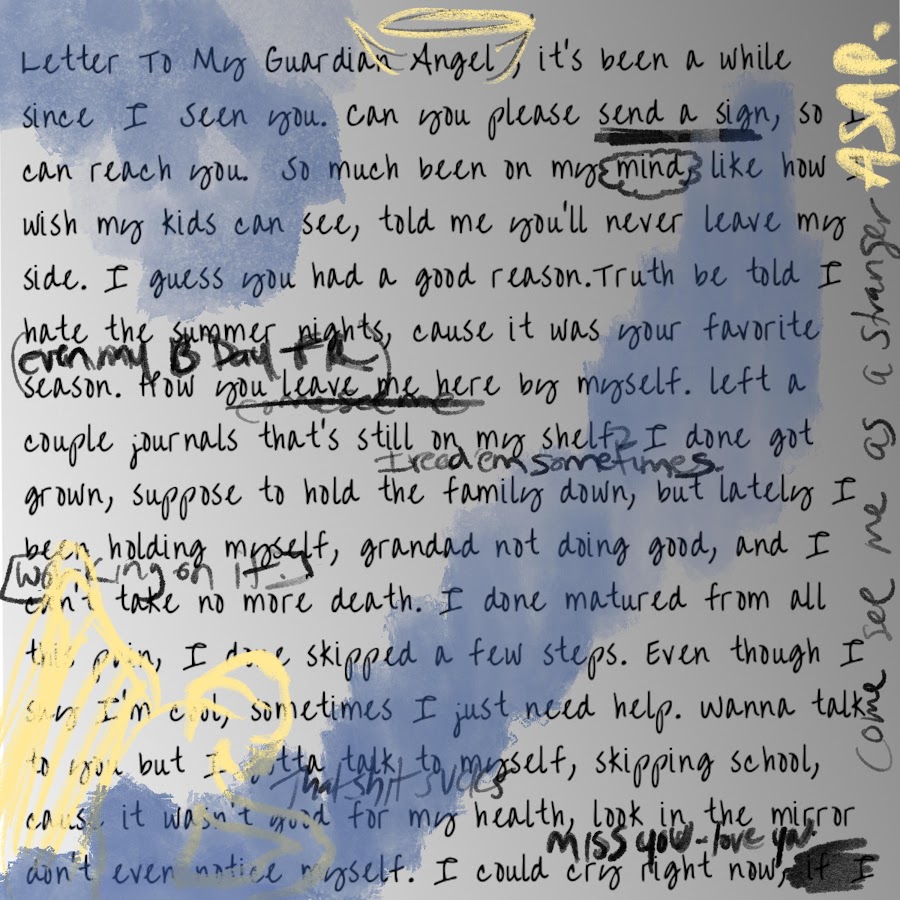 Letter To My Guardian Angel, it's been a while
since I seen you. Can you please send a sign, so I
can reach you. So much been on my mind, like how I
wish my kids can see, told me you'll never leave my
side. I guess you had a good reason. Truth be told I
hate the summer nights, cause it was your favorite
even my B Day FR
season. How you leave me here by myself. Left a
come see me
couple journals that's still on my shelf. I done got
I read em sometimes.
grown, suppose to hold the family down, but lately I
been holding myself, grandad not doing good, and I
Working on it..
can't take no more death. I done matured from all
this pain, I done skipped a few steps. Even though I
say I'm cool, sometimes I just need help. Wanna talk
to you but I gotta talk to myself, skipping school,
That shit sucks
cause it wasn't good for my health, look in the mirror
Miss you - love you.
don't even notice myself. I could cry right now, If I
come see me as a stranger
ASAP.